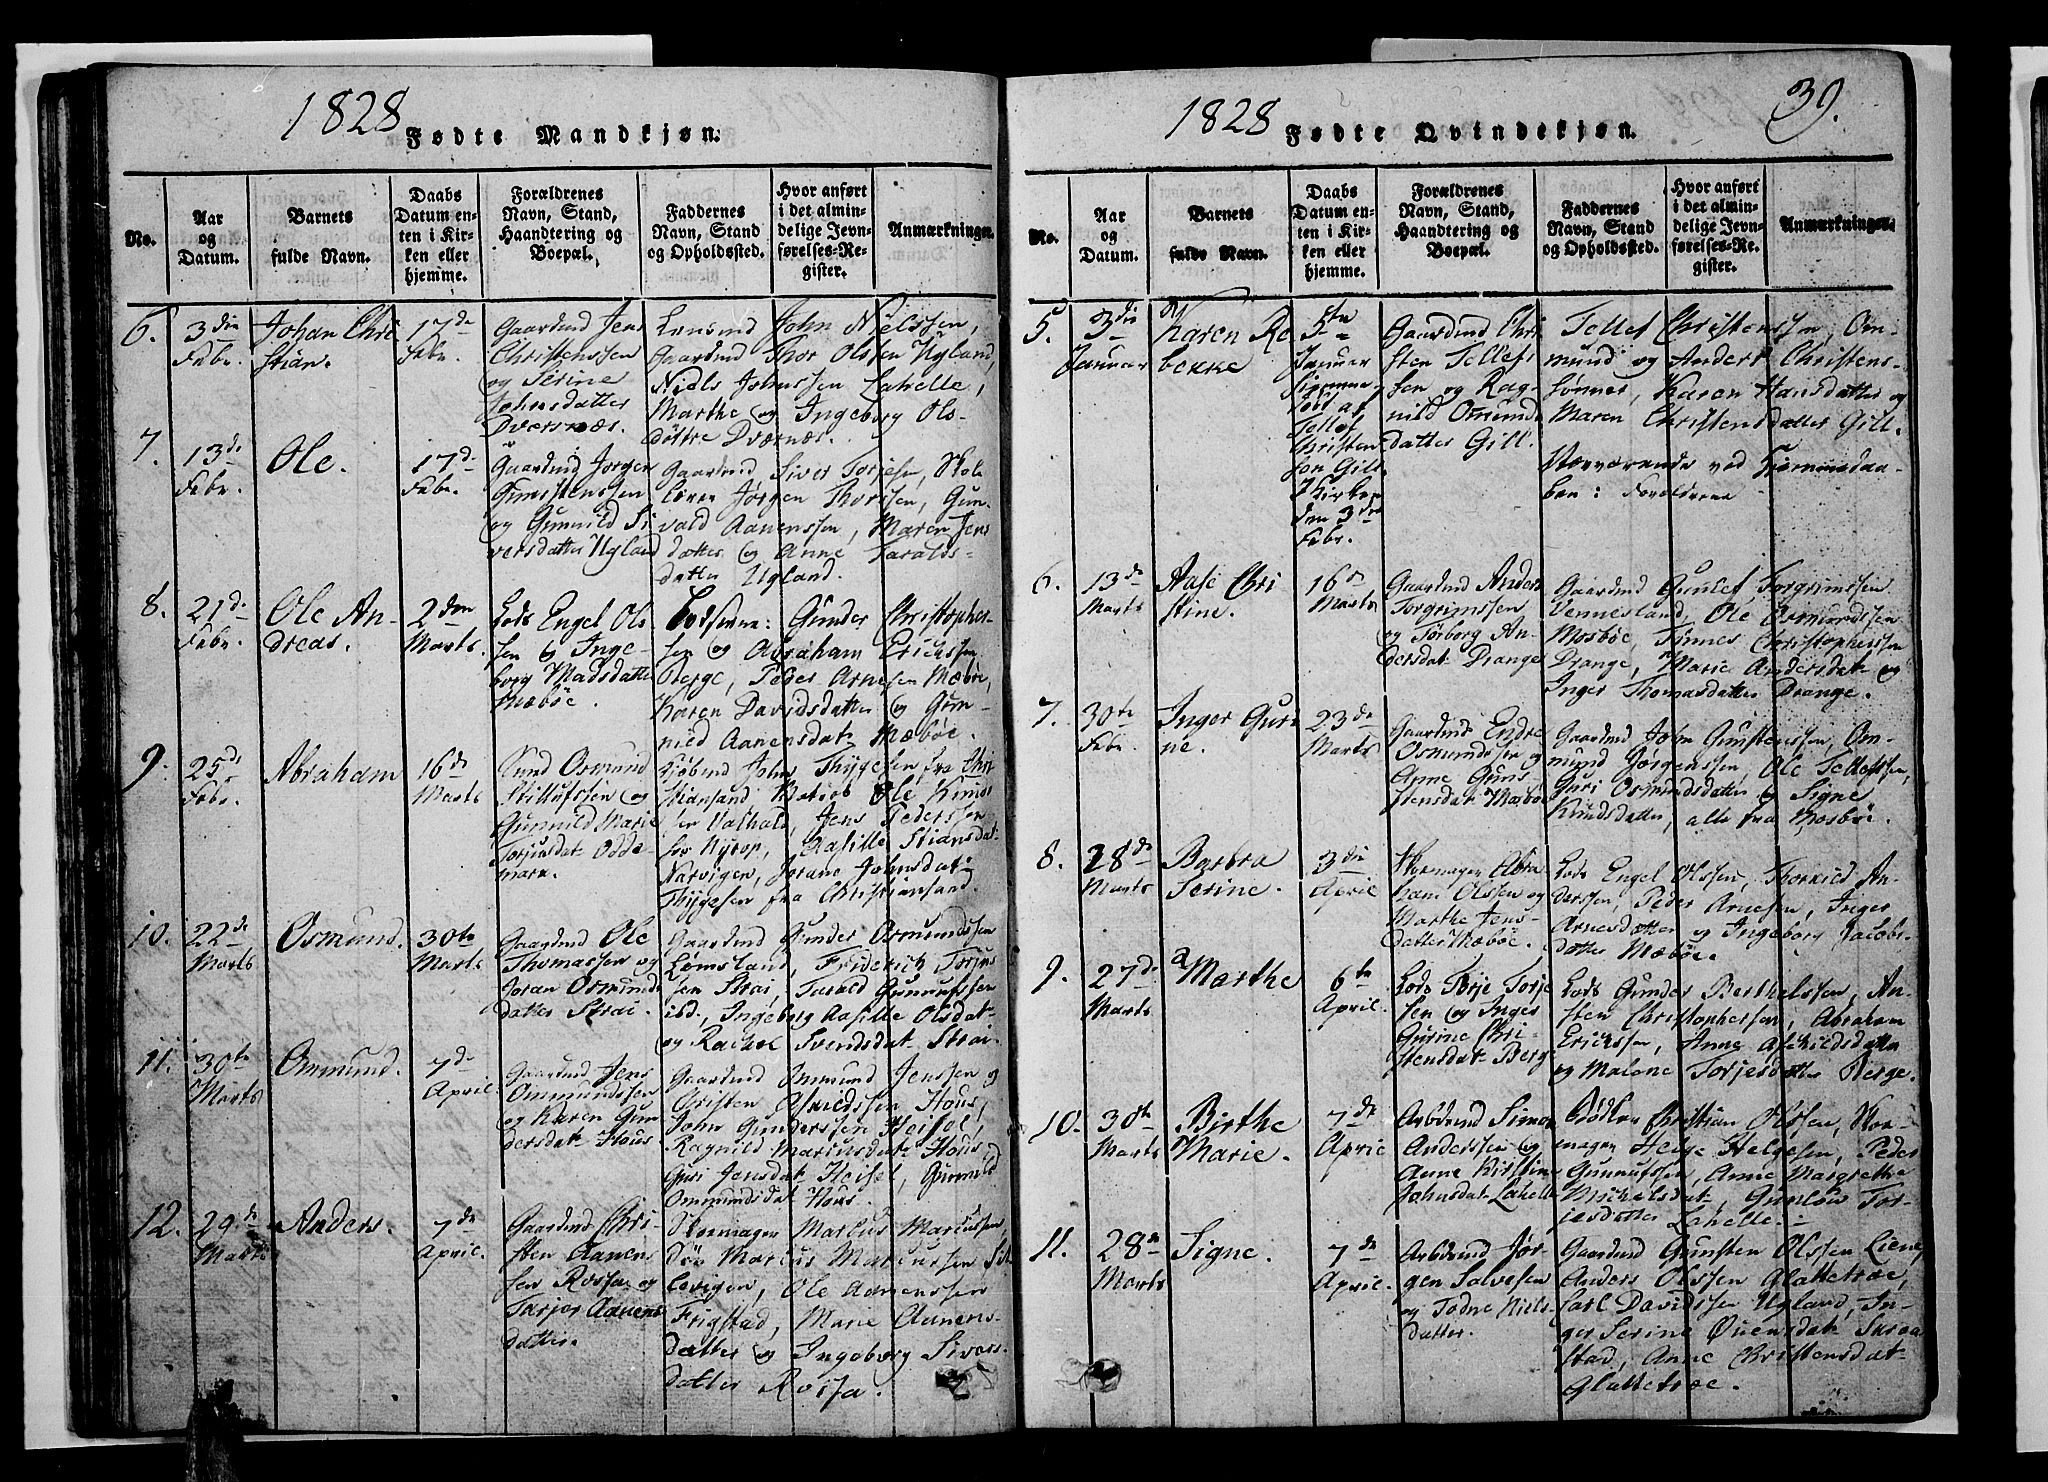 1828
Fødte Mandkjøn.
No.
Aar
og
Datum.
Barnets
fulde Navn.
Daabs
Datum en-
ten i Kir-
ken eller
hjemme.
Forældrenes
Navn, Stand,
Haandtering og
Boepæl.
Faddernes
Navn, Stand
og Opholdssted.
Hvor anført
i det almin-
delige Jevn-
førelses-Re-
gister.
Anmærkninger.
6.
3die
Febr.
Johan Chri
stian.
17de
Febr.
Gaardmd Jens
Christenssen
og Serine
Johnsdatter
Dversnæs.
Lensmd John Nielssen,
Gaardmd Thor Olsen Ugland,
Niels Johnssen Lahelle,
Marthe og Ingeborg Ols-
døttre Dværnæs.
7.
13de
Febr.
Ole.
17de
Febr.
Gaardmd Jørgen
Gunstenssen
og Gunnild Si
versdatter Ugland
Gaardmd Siver Torjesen, Skole
lærer Jørgen Thorssen, Gun-
vald Aanenssen, Maren Jens
datter og Anne Taralds-
datter Ugland.
8.
21de
Febr.
Ole An-
dreas.
2den
Marts.
Lods Engel Ols
sen & Inge-
borg Madsdatter
Mæbøe.
Lodserne: Gunder Christopher
sen og Abraham Erichssen
Berge, Peder Arnesen Mæbøe,
Karen Davidsdatter og Gun-
nild Aanensdat. Mæbøe.
9.
25de
Febr.
Abraham
16de
Marts
Osmund
Stillufssen og
Gunnild Marie
Torjusdat. Odde-
mark.
Kjøbmd John Thygesen fra Chri
stiansand, Ole
Jens Pederssen
Aasille Stiansdat.
Narvigen, Jorane Johnsdat.
Thygesen fra Christiansand.
10.
22de
Marts
Osmund.
30te
Marts
Gaardmd Ole
Thomassen og
Joran Osmunds
datter Strai.
Gaardmd Gunder Osmundssen
Lømsland, Friderich Torjus
sen Strai, Tarald Gunnufssen
ibd., Ingeborg Aasille Olsdat.
og Rachel Svendsdat. Strai.
11.
30te
Marts
Ommund.
7de
April.
Gaardmd Jens
Ommundssen
og Karen Gun
dersdat. Hous
Gaardmd Jenssen og
Christen Hous,
John Gunderssen Heisel,
Ragnild Marcusdat. Hous
Guri Jensdat. Heisel, Gunnild
Ommundsdat. Hous.
12.
29de
Marts
Anders.
7de
April.
Gaardmd Chri
sten Aanens
sen Rossen og
Torjer Aanens
datter.
Skovmagen Marcus Marcussen
Marcus Marcussen
Ole Aanenssen
Frigstad, Marie Aanens-
datter og Ingeborg Sivers-
datter Rossen.
1828
Fødte Qvindekjøn.
39.
No.
Aar
og
Datum.
Barnets
fulde Navn.
Daabs
Datum en-
ten i Kir-
ken eller
hjemme.
Forældrenes
Navn, Stand,
Haandtering og
Boepæl.
Faddernes
Navn, Stand
og Opholdssted.
Hvor anført
i det almin-
delige Jevn-
førelses-Re-
gister.
Anmærkninger.
5.
3die
Januar
Karen Re
bekke
5te
Januar
hjemme
døbt af
Tellef
Christen
sen Gill.
I Kirken
den 3die
Febr.
Gaardmd Chri
sten Tellefs
sen og Rag-
nild Osmunds
datter Gill.
Tellef Christenssen, Om-
mund og Anders Christens-
sønner, Karen Hansdatter og
Maren Christensdatter Gill.
Nærværende ved Hjemmedaa-
ben: Forældrene
6.
13de
Marts
Aase Chri
stine.
16de
Marts
Gaardmd Anders
Torgrimssen
og Torborg An-
dersdat. Drange
Gaardmd Gunlef Torgrimssen
Vennesland, Ole Osmundssen
Mosbøe, Tønnes Christopherssen
Drange, Marie Andersdat. og
Inger Thomasdatter Drange.
7.
30te
Febr.
Inger Guri
ne.
23de
Marts
Gaardmd Endre
Osmundssen og
Anne Guns-
stensdat. Mosbøe
Gaardmd Jøren Gunstenssen, Om-
mund Jørgenssen, Ole Tellefssen,
Guri Osmundsdatter og Signe
Knudsdatter, alle fra Mosbøe.
8.
28de
Marts
Barbra
Serine.
3die
April
Skomager Abra
ham Olssen og
Marthe Jens-
datter Mæbøe.
Lods Engel Olssen, Thorkild An-
derssen, Peder Arnesen, Inger
Arnesdatter og Ingeborg Jacobs-
datter Mæbøe.
9.
27de
Marts
Marthe
6te
April.
Lods Terje Torje
sen og Inger
Gurine Chri-
stensdat. Berg
Lods Gunder Berthelssen, An-
sten Christophersen, Abraham
Erichssen, Anne Aschildsdatter
og Malene Torjesdatter Berge.
10.
30te
Marts
Birthe
Marie.
7de
April
Arbdsmd Simon
Anderssen og
Anne Kirstine
Johnsdat. Lahelle
Bødker Christian Olssen, Sko-
mager Helge Helgesen, Peder
Gunnufssen, Anne Margrethe
Michelsdat., Gunlou Tor-
jesdatter Lahelle.
11.
28de
Marts
Signe.
7de
April.
Arbdsmd Jør-
gen Salvesen
og Todne Niels-
datter.
Gaardmd Gunsten Olssen Liene,
Anders Olssen Glattetræ,
Carl Davidssen Ugland, In-
ger Serine Øvensdat. Skraa
stad, Anne Christensdat.
Glattetræ.